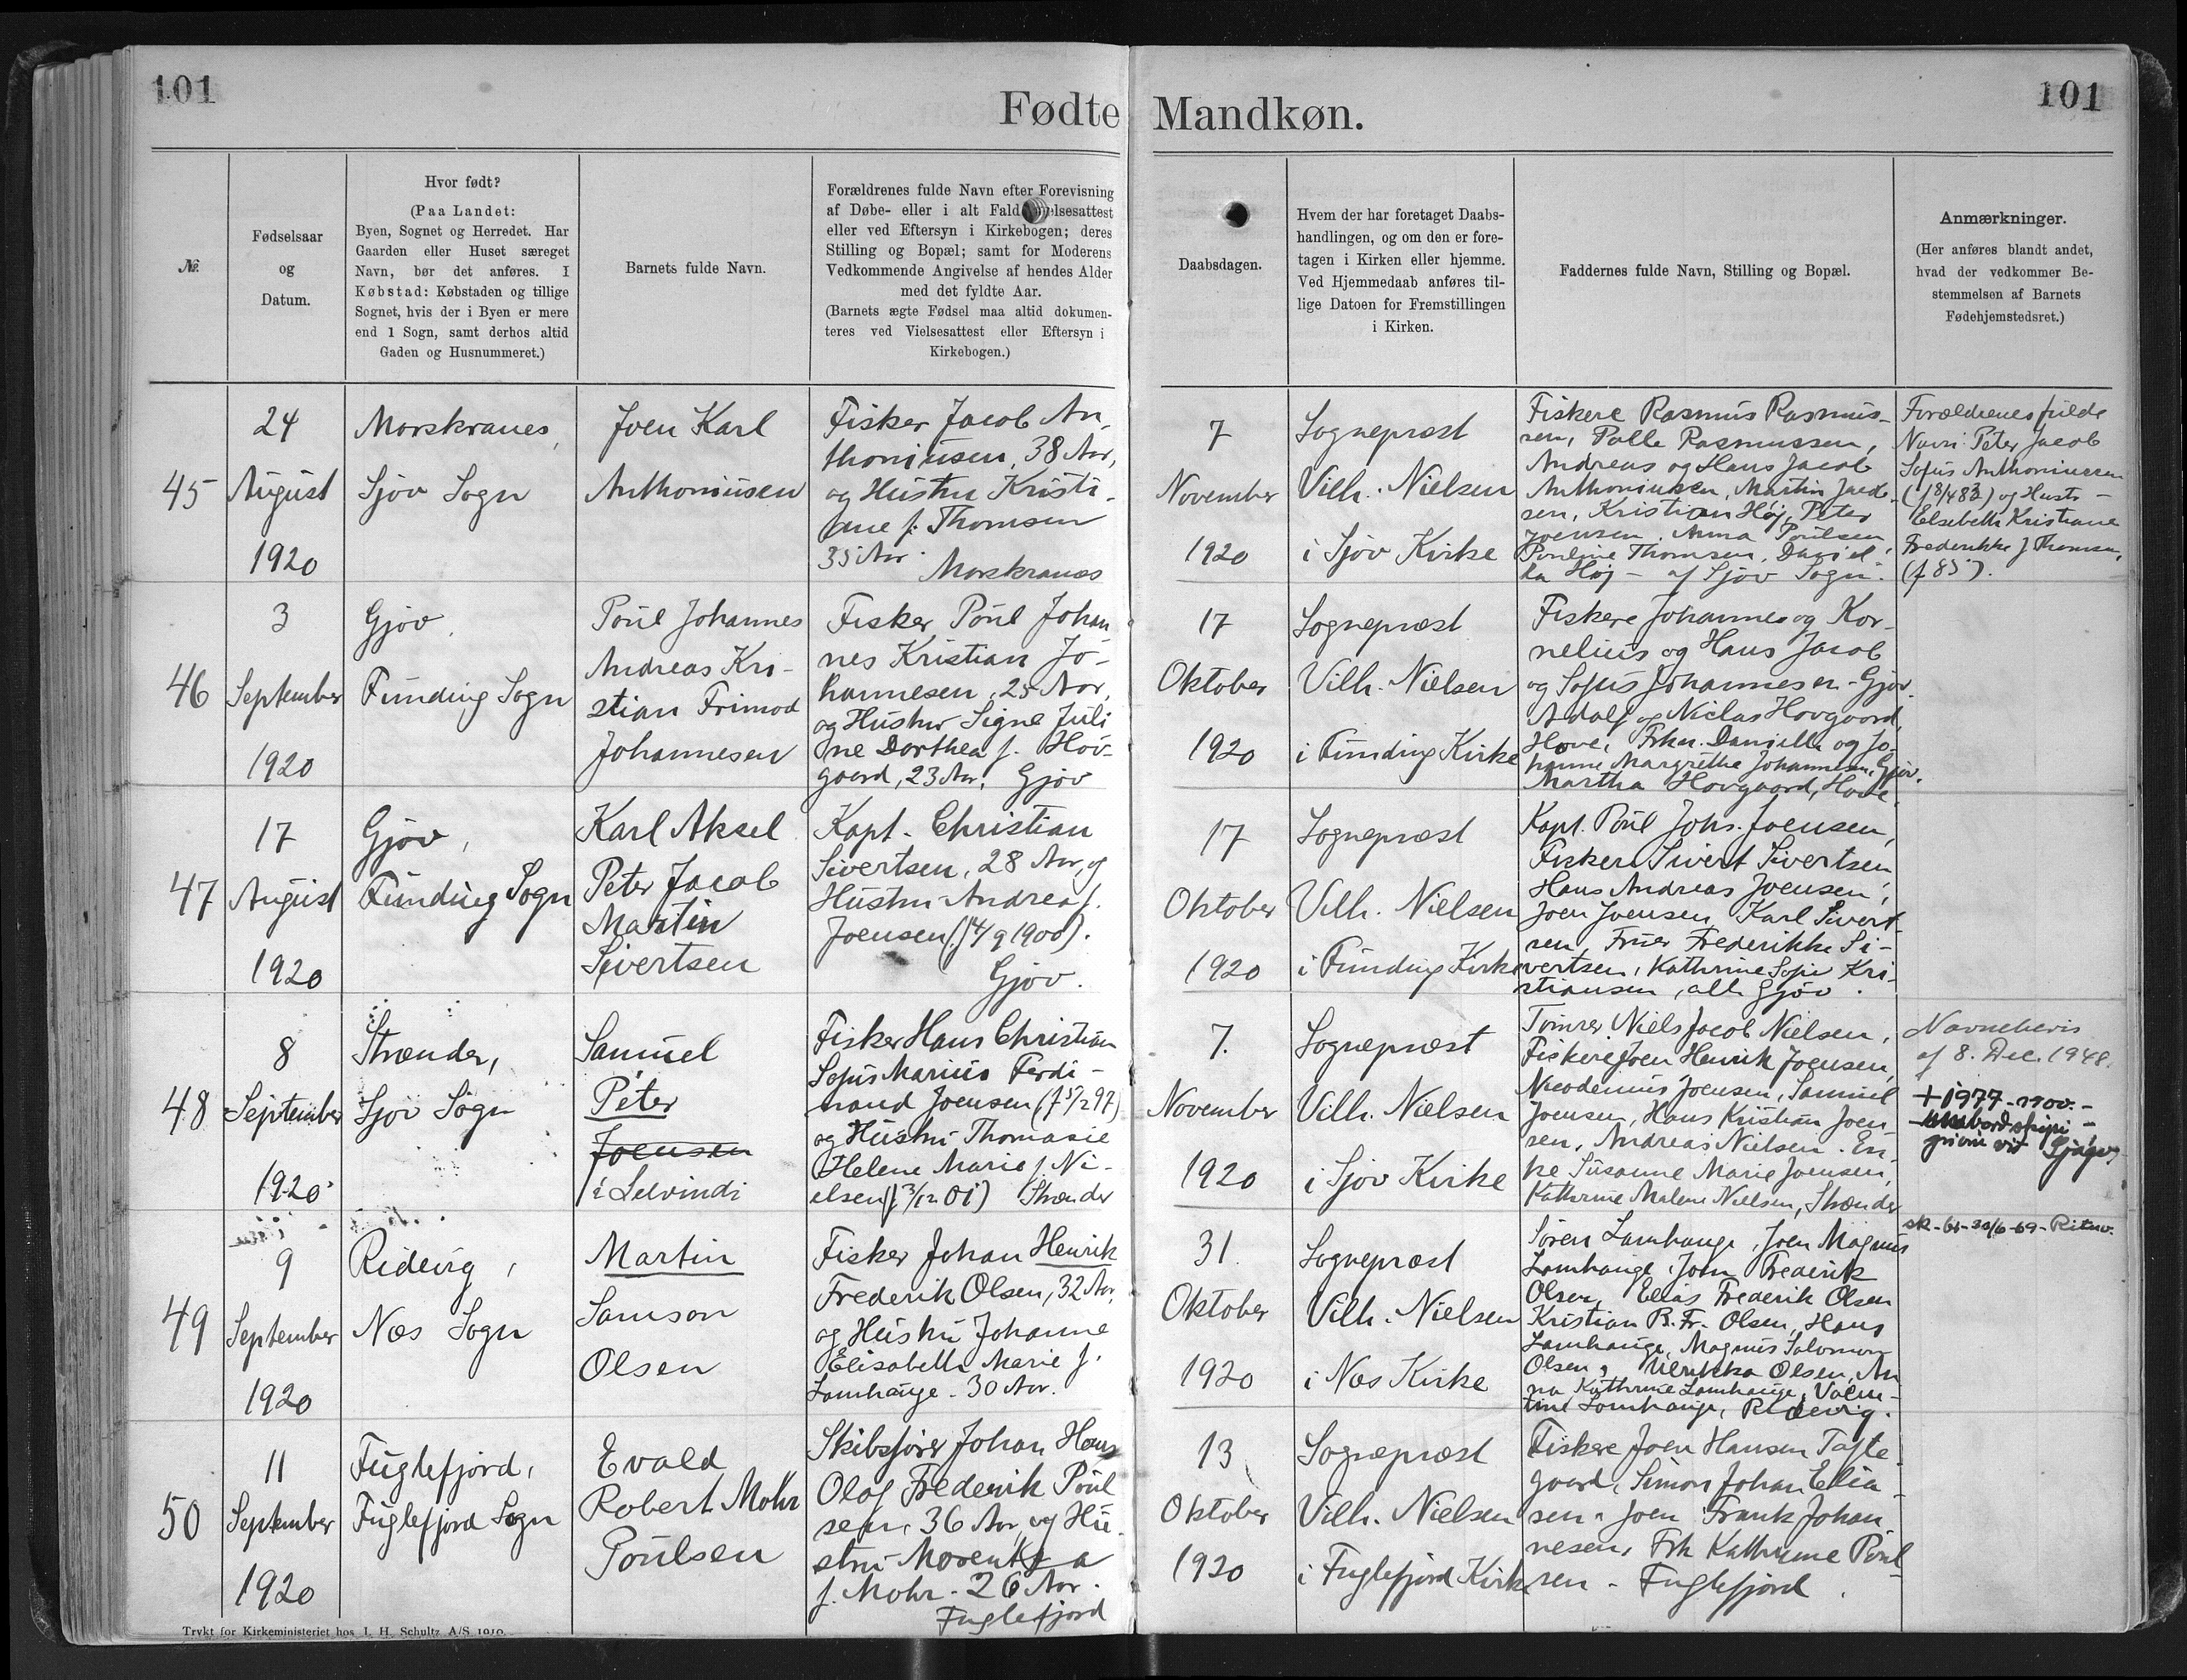 101
101
Fødte
Mandkøn.
№.
Fødselsaar
og
Datum.
Hvor født?
(Paa Landet:
Byen, Sognet og Herredet. Har
Gaarden eller Huset særeget
Navn, bør det anføres. I
Købstad: Købstaden og tillige
Sognet, hvis der i Byen er mere
end 1 Sogn, samt derhos altid
Gaden og Husnummeret.)
Barnets fulde Navn.
Forældrenes fulde Navn efter Forevisning
af Døbe- eller i alt Fald
eller ved Eftersyn i Kirkebogen; deres
Stilling og Bopæl; samt for Moderens
Vedkommende Angivelse af hendes Alder
med det fyldte Aar.
(Barnets ægte Fødsel maa altid dokumen-
teres ved Vielsesattest eller Eftersyn i
Kirkebogen.)
Daabsdagen.
Hvem der har foretaget Daabs-
handlingen, og om den er fore-
tagen i Kirken eller hjemme.
Ved Hjemmedaab anføres til-
lige Datoen for Fremstillingen
i Kirken.
Faddernes fulde Navn, Stilling og Bopæl.
Anmærkninger.
(Her anføres blandt andet,
hvad der vedkommer Be-
stemmelsen af Barnets
Fødehjemstedsret.)
45
24
August
1920
Morskranes,
Sjov Sogn
Joen Karl
Anthoniusen
Fisker Jacob An-
thoniusen, 38 Aar,
og Hustru Kristi-
ane f. Thomsen
35 Aar.
Morskranes
7
November
1920
Sognepræst
Vilh. Nielsen
i Sjov Kirke
Fiskere Rasmus Rasmus-
sen, Palle Rasmussen,
Andreas og Hans Jacob
Anthoniusen, Martin
sen, Kristian Høj, Peter
Joensen, Anna Poulsen,
Pouline Thomsen, Daniel
ka Høj - af Sjov Sogn.
Forældrenes fulde
Navn: Peter Jacob
Sofus Anthoniussen
og Hustr-
Elsebeth Kristiane
Frederikke f. Thomsen,
(f. 85).
46
3
September
1920
Gjov,
Funding Sogn
Poul Johannes
Andreas Kri-
stian Frimod
Johannesen
Fisker Poul Johan
nes Kristian Jo-
hannesen, 25 Aar,
og Hustru Signe Juli
ne Dorthea f. Hov-
gaard, 23 Aar. Gjov
17
Oktober
1920
Sognepræst
Vilh. Nielsen
i Funding Kirke
Fiskere Johannes og Kor-
nelius og Hans Jacob
og Sofus Johannesen - Gjov.
Adolf og Niclas Hovgaard,
Hove, Frkn. Daniella og Jo-
hanne Margrethe Johannesen, Gjov.
Martha Hovgaard, Hove.
47
17
August
1920
Gjov,
Funding Sogn
Karl Aksel
Peter Jacob
Martin
Sivertsen
Kapt. Christian
Sivertsen, 28 Aar, og
Hustru Andrea f.
Joensen (f 14/9 1900).
Gjov.
17
Oktober
1920
Sognepræst
Vilh. Nielsen
i Funding Kirke
Kapt. Poul Johs. Joensen,
Fiskere Sivert Sivertsen
Hans Andreas Joensen,
Joen Joensen, Karl Sivert-
sen, Fruer Frederikke Si-
vertsen, Kathrine Sofie Kri-
stiansen, alle Gjov.
48
8
September
1920
Strænder,
Sjov Sogn
Samuel
Peter
Joensen
í Selvindi
Fisker Hans Christian
Sofus Marius Ferdi-
nand Joensen (f 5/2 97)
og Hustru Thomasie
Helene Marie f. Ni-
elsen (f 3/12 01) Strænder
7.
November
1920
Sognepræst
Vilh. Nielsen
i Sjov Kirke
Tømrer Niels Jacob Nielsen,
Fiskere Joen Henrik Joensen,
Nicodemus Joensen, Samuel
Joensen, Hans Kristian Joen-
sen, Andreas Nielsen. En-
ke Susanne Marie Joensen,
Kathrine Malene Nielsen, Strænder
Navnebevis
af 8. Dec. 1948.
+ 1977 - nov. -
49
9
September
1920
Ridevig,
Næs Sogn
Martin
Samson
Olsen
Fisker Johan Henrik
Frederik Olsen, 32 Aar,
og Hustru Johanne
Elisabeth Marie f.
Lamhauge - 30 Aar.
31.
Oktober
1920
Sognepræst
Vilh. Nielsen
i Næs Kirke
Søren Lamhauge, Joen Magnus
Lamhauge, John Frederik
Olsen, Elias Frederik Olsen
Kristian B. Fr. Olsen, Hans
Lamhauge, Magnus Salomon
Olsen, Ulrikka Olsen, An
na Kathrine Lamhauge, Valen-
tine Lamhauge, Ridevig.
50
11
September
1920
Fuglefjord,
Fuglefjord Sogn
Evald
Robert Mohr
Poulsen
Skibsfører Johan Hans
Olaf Frederik Poul
sen, 36 Aar, og Hu-
stru
f. Mohr - 26 Aar.
Fuglefjord
13
Oktober
1920
Sognepræst
Vilh. Nielsen
i Fuglefjord Kirke
Fiskere Joen Hansen Tofte
gaard, Simon Johan Elia-
sen, Joen Frank Johan
nesen, Frk Kathrine Poul
sen - Fuglefjord.
Trykt for Kirkeministeriet hos J. H. Schultz A/S 1910.